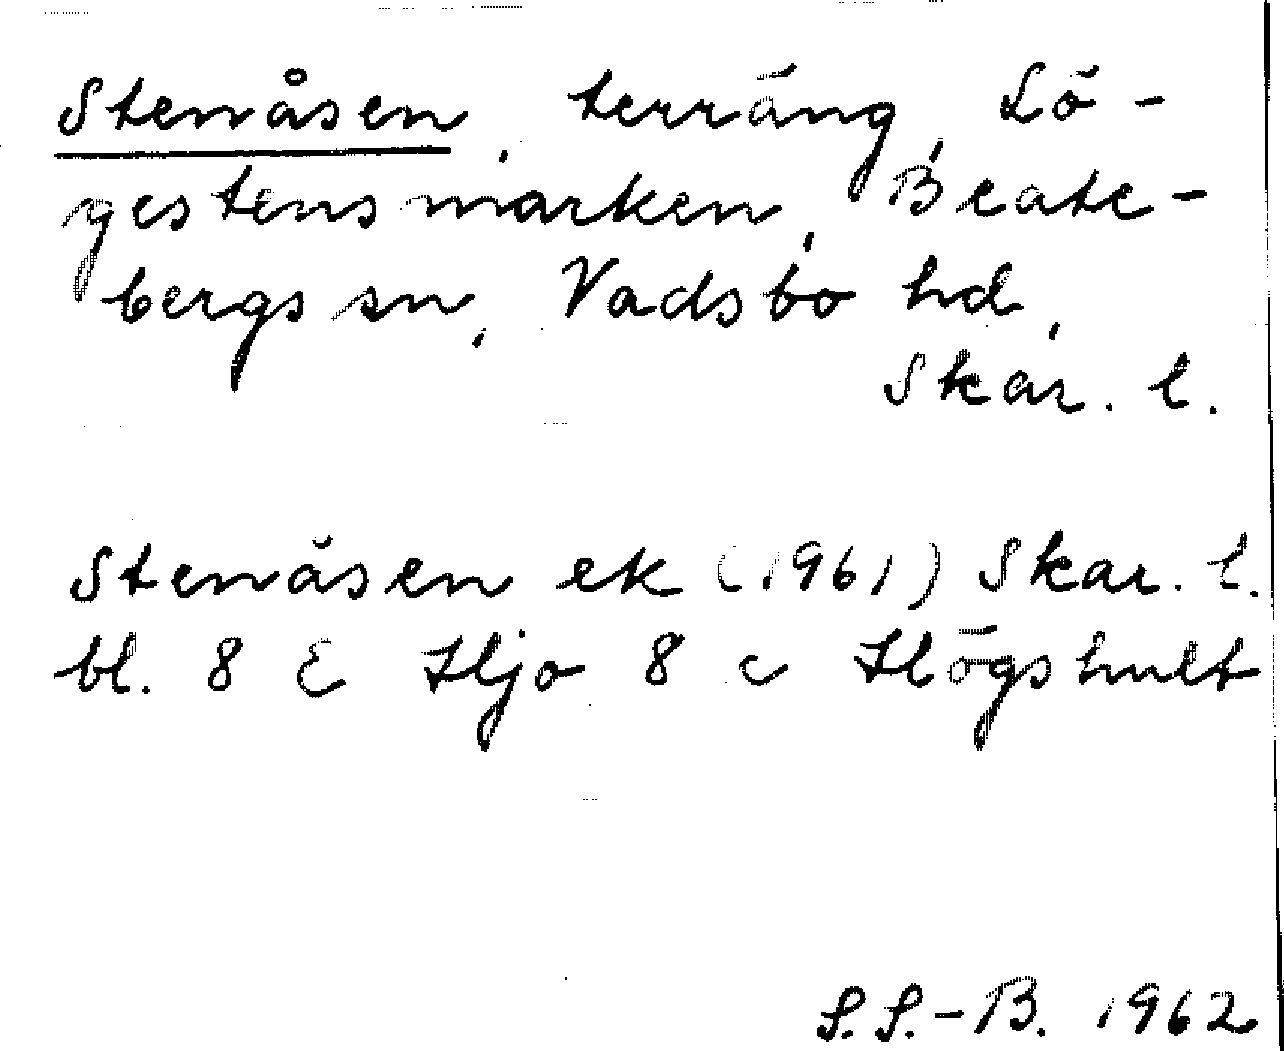 Stenåsen, terräng, Lö-
gestensmarken, Beate-
bergs sn, Vadsbo hd,
Skar. l.
Stenåsen ek (1961) Skar. l.
bl. 8 E Hjo 8 c Högshult
S.S.-B. 1962